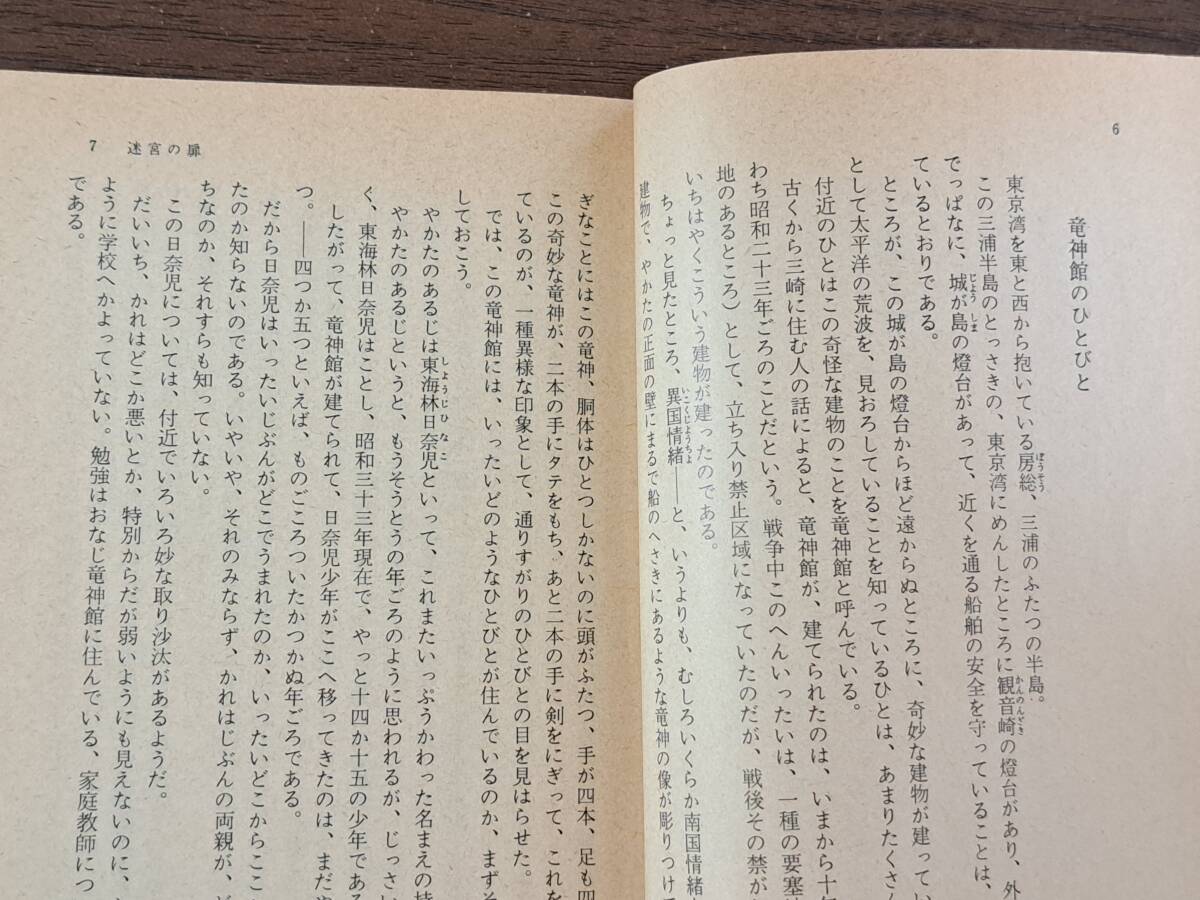 6
竜神館のひとびと
東京湾を東と西から抱いている房総、三浦のふたつの半島。
この三浦半島のとっさきの、東京湾にめんしたところに観音崎の燈台があり、外
でっぱなに、城が島の燈台があって、近くを通る船舶の安全を守っていることは、
ているとおりである。
ところが、この城が島の燈台からほど遠からぬところに、奇妙な建物が建ってい
として太平洋の荒波を、見おろしていることを知っているひとは、あまりたくさん
付近のひとはこの奇怪な建物のことを竜神館と呼んでいる。
古くから三崎に住む人の話によると、竜神館が、建てられたのは、いまから十年
わち昭和二十三年ごろのことだという。戦争中このへんいったいは、一種の要塞
地のあるところ）として、立ち入り禁止区域になっていたのだが、戦後その禁が
いちはやくこういう建物が建ったのである。
ちょっと見たところ、異国情緒――と、いうよりも、むしろいくらか南国情緒
建物で、やかたの正面の壁にまるで船のへさきにあるような竜神の像が彫りつけ
7 迷宮の扉
ぎなことにはこの竜神、胴体はひとつしかないのに頭がふたつ、手が四本、足も四
この奇妙な竜神が、二本の手にタテをもち、あと二本の手に剣をにぎって、これを
ているのが、一種異様な印象として、通りすがりのひとびとの目を見はらせた。
では、この竜神館には、いったいどのようなひとびとが住んでいるのか、まずそ
しておこう。
やかたのあるじは東海林日奈児といって、これまたいっぷうかわった名まえの持
やかたのあるじというと、もうそうとうの年ごろのように思われるが、じっさい
く、東海林日奈児はことし、昭和三十三年現在で、やっと十四か十五の少年である
したがって、竜神館が建てられて、日奈児少年がここへ移ってきたのは、まだや
つ。――四つか五つといえば、ものごころついたかつかぬ年ごろである。
だから日奈児はいったいじぶんがどこでうまれたのか、いったいどこからここ
たのか知らないのである。いやいや、それのみならず、かれはじぶんの両親が、ど
ちなのか、それすらも知っていない。
この日奈児については、付近でいろいろ妙な取り沙汰があるようだ。
だいいち、かれはどこか悪いとか、特別からだが弱いようにも見えないのに、
ように学校へかよっていない。勉強はおなじ竜神館に住んでいる、家庭教師につ
である。